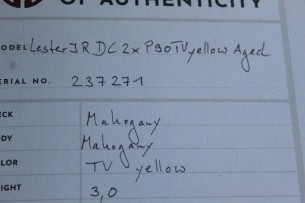 OF AUTHENTICITY
ODEL Lester JR DC 2x P90 TV yellow Aged
ERIAL NO. 237271
ECK Mahogany
DY Mahogany
LOR TV yellow
IGHT 3,0